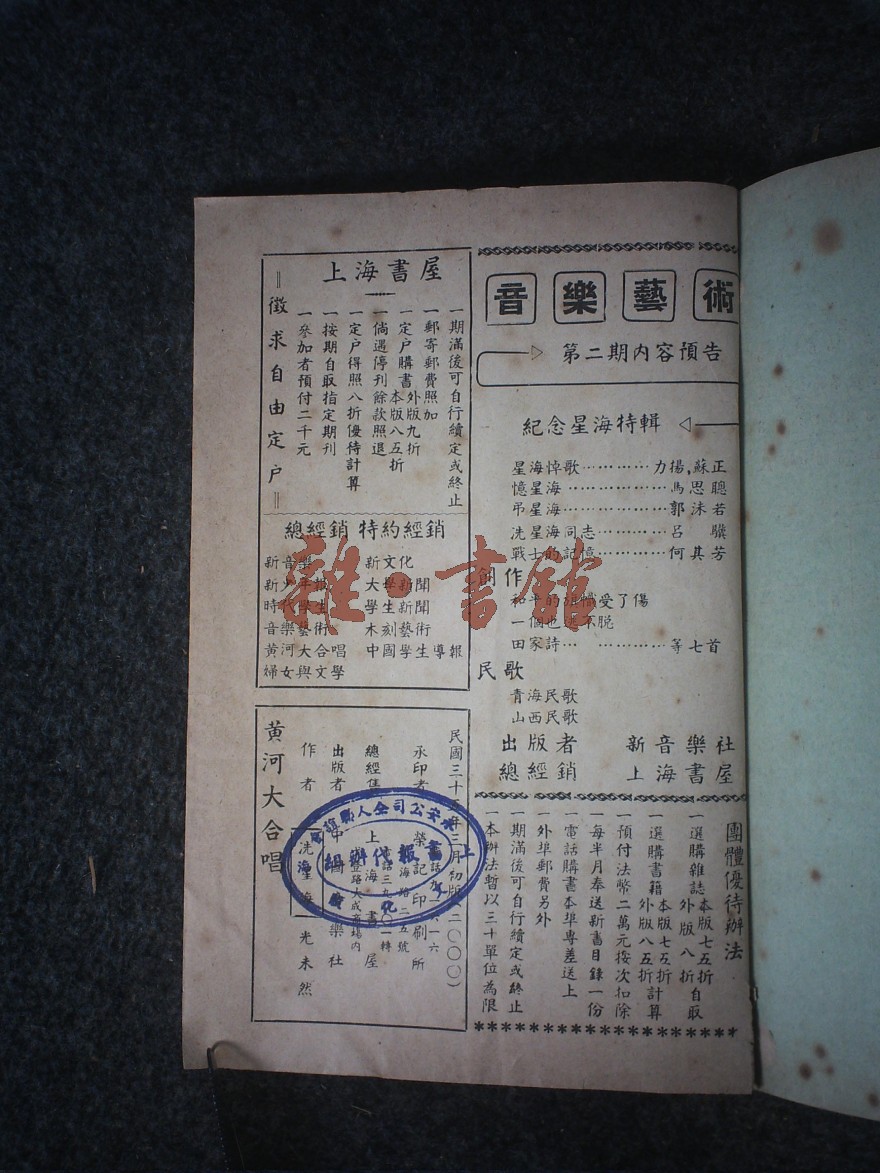 音樂藝術
第二期内容預告
紀念星海特輯
星海悼歌…………力揚,蘇正
憶星海…………馬思聰
弔星海…………郭沫若
洗星海同志…………呂驥
戰士的記憶…………何其芳
創作
和平的旗幟受了傷
一個也逃不脱
田家詩…………等七首
民歌
青海民歌
山西民歌
出版者 新音樂社
總經銷 上海書屋
團體優待辦法
一選購雜誌本版七五折外版八折自取
一選購書籍本版七五折外版八五折計算
一預付法幣二萬元按次扣除
一每半月奉送新書目錄一份
一電話購書本埠專差送上
一外埠郵費另外
一期滿後可自行續定或終止
一本辦法暫以三十單位為限
上海書屋
一期滿後可自行續定或終止
一郵寄郵費照加
一定户購書外版九折本版八五折
一倘遇停刊餘款照退
一定户得照八折優待計算
一按期自取指定期刊
一參加者預付二千元
徵求自由定户
總經銷 特約經銷
新音樂 新文化
大學新聞
學生新聞
音樂藝術 木刻藝術
黄河大合唱 中國學生導報
婦女與文學
黄河大合唱
三月初版
承印者 榮記印刷所
上海書屋
出版者
作者 洗星海 光未然
書報代辦組
雜·書館